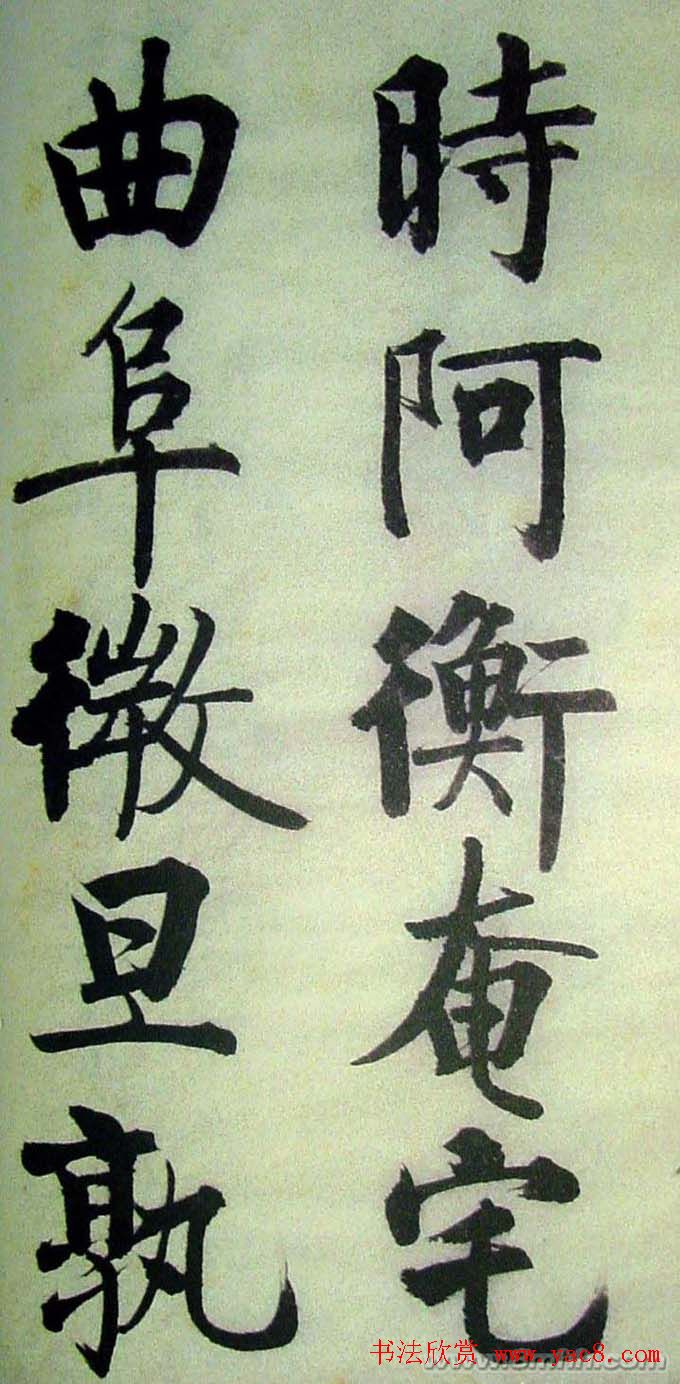 時阿衡奄宅
曲阜微旦孰
书法欣赏 www.yac8.com